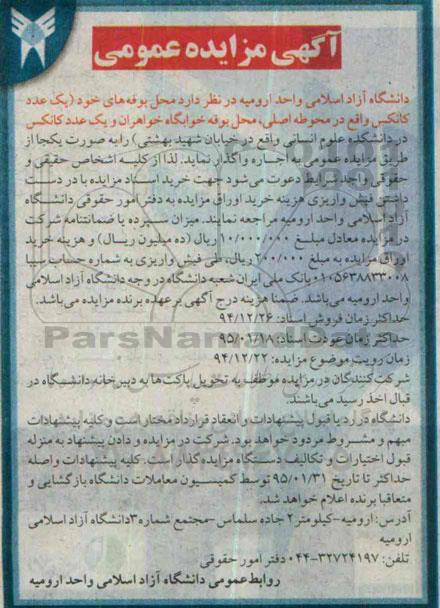 آگهی مزایده عمومی
دانشگاه آزاد اسلامی واحد ارومیه در نظر دارد محل بوفه‌های خود (یک عدد
کانکس واقع در محوطه اصلی، محل بوفه خوابگاه خواهران و یک عدد کانکس
در دانشکده علوم انسانی واقع در خیابان شهید بهشتی) را به صورت یکجا از
طریق مزایده عمومی به اجاره واگذار نماید. لذا از کلیه اشخاص حقیقی و
حقوقی واجد شرایط دعوت می‌شود جهت خرید اسناد مزایده با در دست
داشتن فیش واریزی هزینه خرید اوراق مزایده به دفتر امور حقوقی دانشگاه
آزاد اسلامی واحد ارومیه مراجعه نمایند. میزان سپرده یا ضمانتنامه شرکت
در مزایده معادل مبلغ ۱۰/۰۰۰/۰۰۰ ریال (ده میلیون ریال) و هزینه خرید
اوراق مزایده به مبلغ ۲۰۰/۰۰۰ ریال، طی فیش واریزی به شماره حساب سیبا
۰۱۰۵۶۳۸۸۳۳۰۰۸ بانک ملی ایران شعبه دانشگاه در وجه دانشگاه آزاد اسلامی
واحد ارومیه می‌باشد. ضمنا هزینه درج آگهی بر عهده برنده مزایده می‌باشد.
حداکثر زمان فروش اسناد: ۹۴/۱۲/۲۶
حداکثر زمان عودت اسناد: ۹۵/۰۱/۱۸
زمان رویت موضوع مزایده: ۹۴/۱۲/۲۲
شرکت کنندگان در مزایده موظف به تحویل پاکت‌ها به دبیرخانه دانشگاه در
قبال اخذ رسید می‌باشند.
دانشگاه در رد یا قبول پیشنهادات و انعقاد قرارداد مختار است و کلیه پیشنهادات
مبهم و مشروط مردود خواهد بود. شرکت در مزایده و دادن پیشنهاد به منزله
قبول اختیارات و تکالیف دستگاه مزایده گذار است. کلیه پیشنهادات واصله
حداکثر تا تاریخ ۹۵/۰۱/۳۱ توسط کمیسیون معاملات دانشگاه بازگشایی و
متعاقبا برنده اعلام خواهد شد.
آدرس: ارومیه-کیلومتر ۲ جاده سلماس-مجتمع شماره ۳ دانشگاه آزاد اسلامی
ارومیه
تلفن: ۳۲۷۲۴۱۹۷-۰۴۴ دفتر امور حقوقی
روابط عمومی دانشگاه آزاد اسلامی واحد ارومیه
ParsNamadData